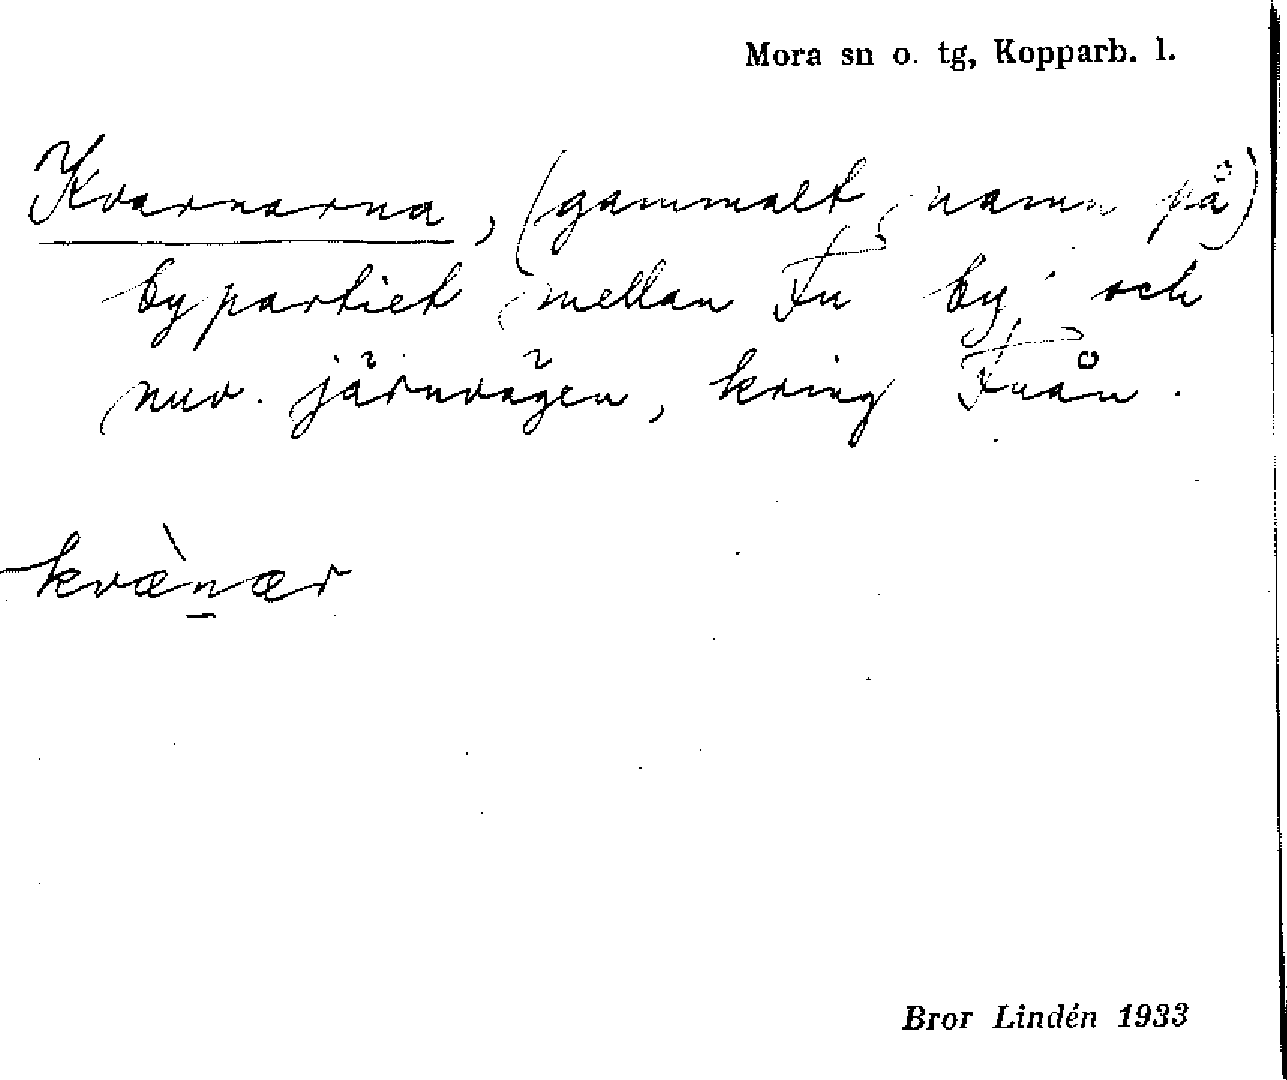 Mora sn o. tg, Kopparb. l.
Kvarnarna, (gammalt namn på)
bypartiet mellan Fu by och
nuv. järnvägen, kring Fuån.
kvæ̀n̲ær
Bror Lindén 1933